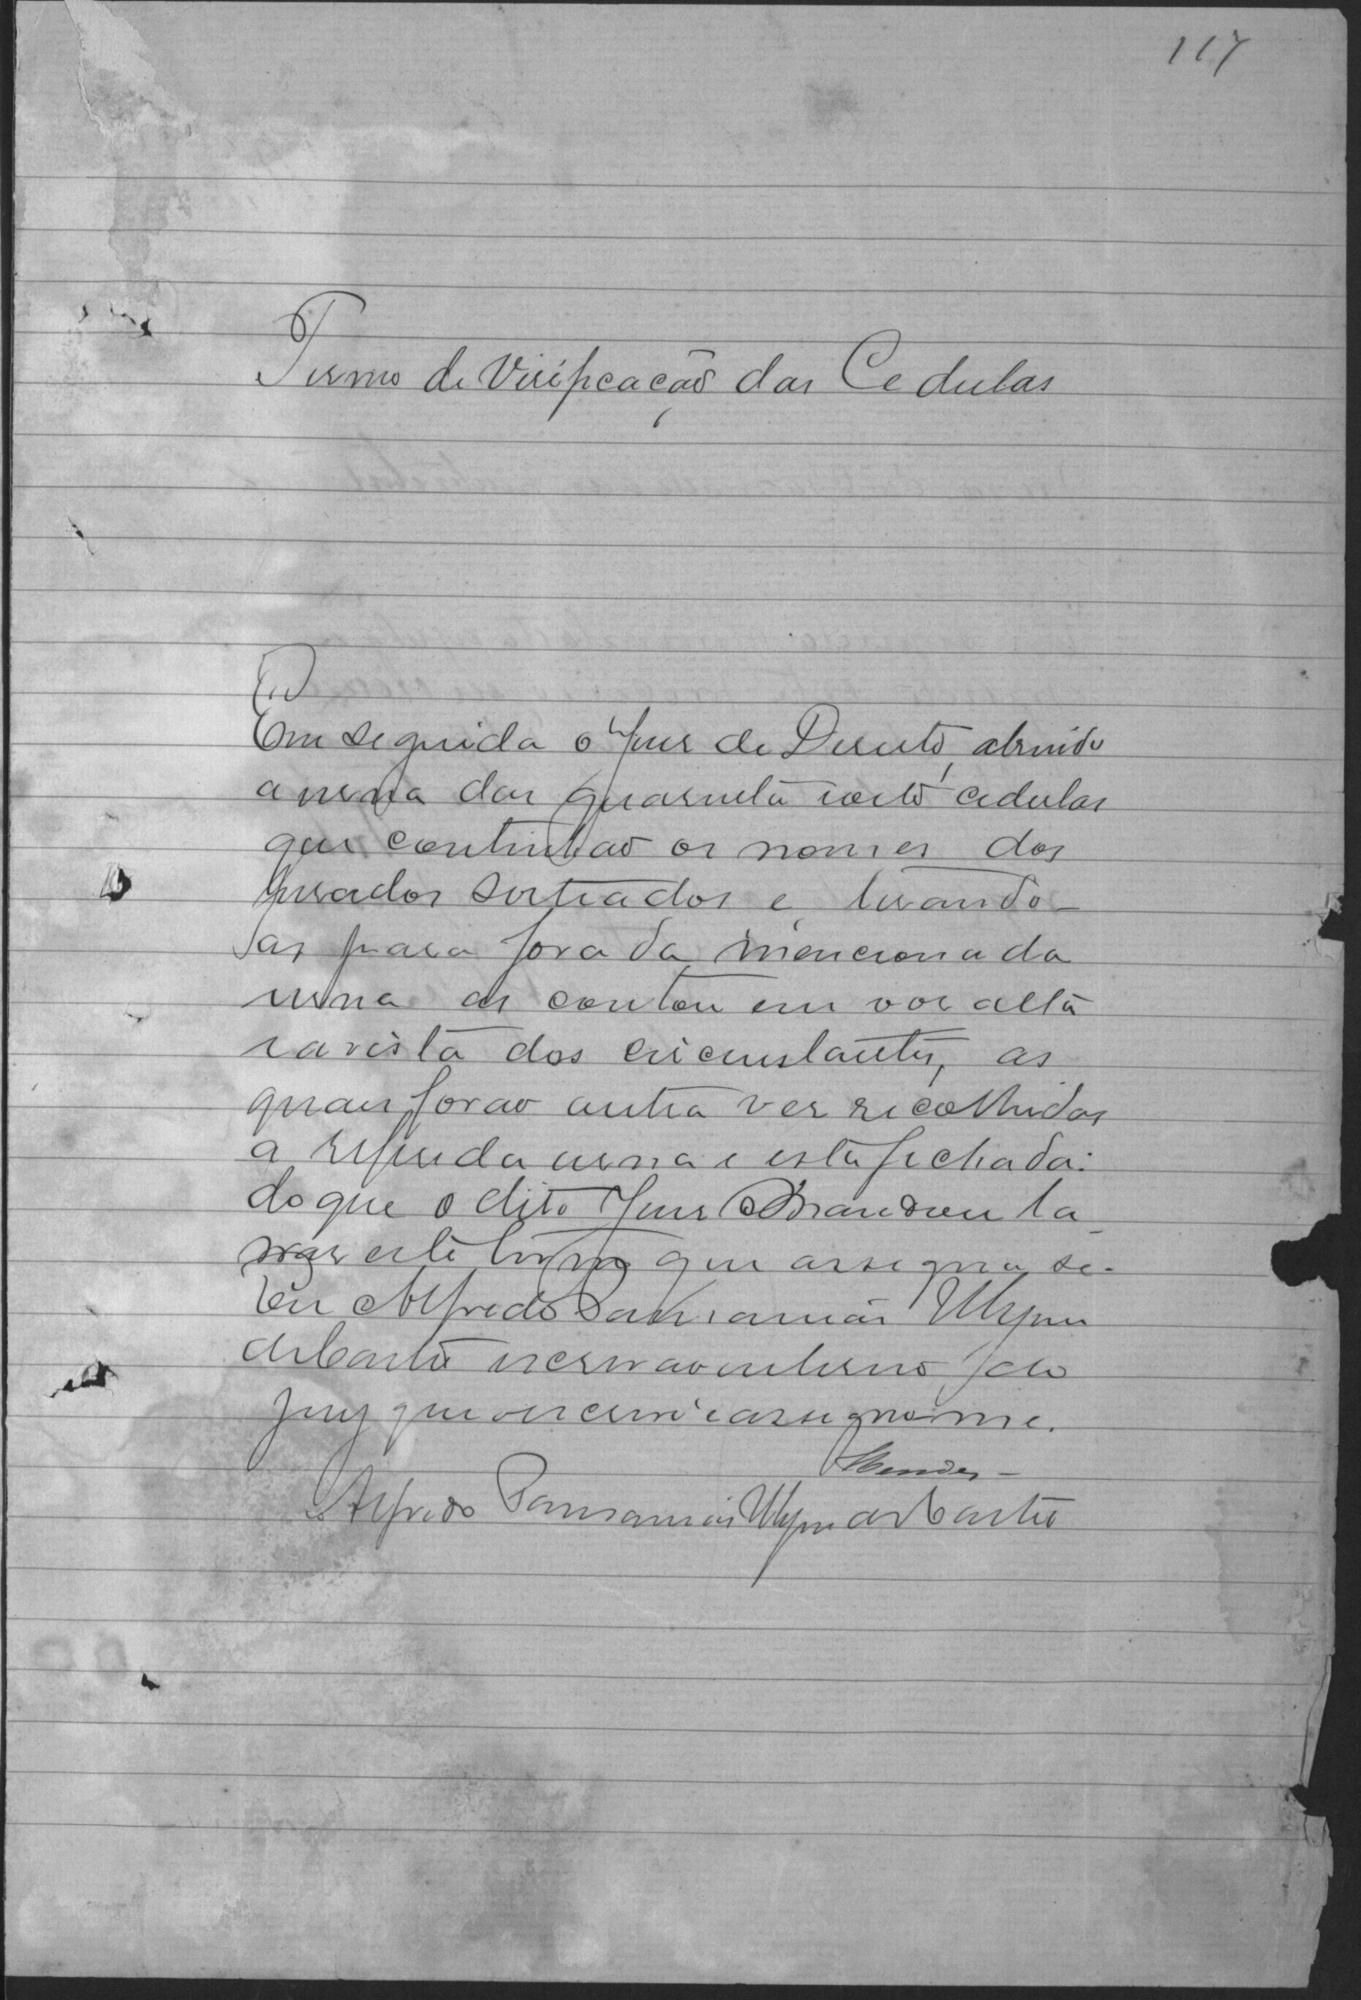 117
Termo de Virificação das Cedulas
Em seguida o Juis de Dereito, abrindo
a urna das quarenta e oito cedulas
que continhão os nomes dos
jurados sorteados e, tirando-
as para fora da mencionada
urna as contou em vos alta
e a vista dos circunstantes, as
quais forão outra ves recolhidas
a referida urna e esta fechada:
do que o dito Juis mandou la
vrar este termo que assigna se.
Eu Alfredo Pausanias
de Castro escrivão interno do
jury que o escrevi e assigno me.
Mendes
Alfredo Pausanias de Castro